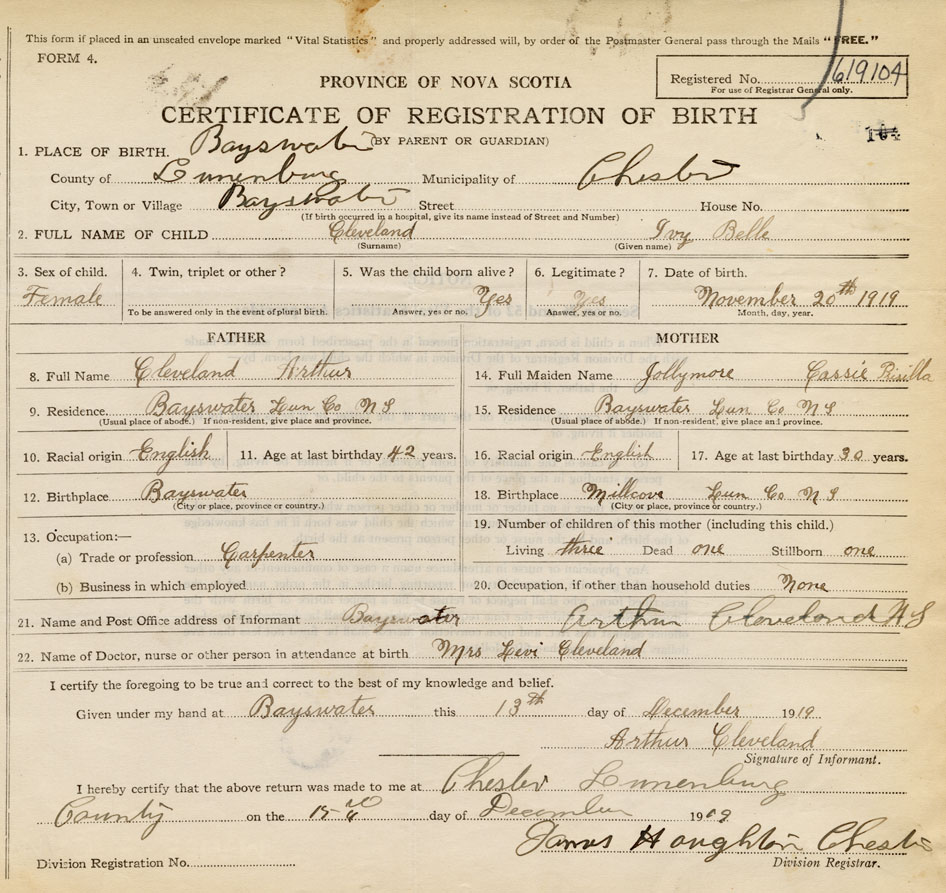 This form if placed in an unsealed envelope marked "Vital Statistics" and properly addressed will, by order of the Postmaster General pass through the Mails "FREE."
FORM 4.
PROVINCE OF NOVA SCOTIA
Registered No. 619104
For use of Registrar General only.
CERTIFICATE OF REGISTRATION OF BIRTH
(BY PARENT OR GUARDIAN)
164
1. PLACE OF BIRTH. Bayswater
County of Lunenburg Municipality of Chester
City, Town or Village Bayswater Street House No.
(If birth occurred in a hospital, give its name instead of Street and Number)
2. FULL NAME OF CHILD Cleveland Ivy Belle
(Surname) (Given name)
3. Sex of child. 4. Twin, triplet or other? 5. Was the child born alive? 6. Legitimate? 7. Date of birth.
Female Yes Yes November 20th 1919
To be answered only in the event of plural birth. Answer, yes or no. Answer, yes or no. Month, day, year.
FATHER MOTHER
8. Full Name Cleveland Arthur 14. Full Maiden Name Jollymore Cassie Prisilla
9. Residence. Bayswater Lun Co N S 15. Residence Bayswater Lun Co N S
(Usual place of abode.) If non-resident, give place and province. (Usual place of abode.) If non-resident, give place and province.
10. Racial origin English 11. Age at last birthday 42 years. 16. Racial origin English 17. Age at last birthday 30 years.
12. Birthplace Bayswater 18. Birthplace Millcove Lun Co N S
(City or place, province or country.) (City or place, province or country.)
13. Occupation:— 19. Number of children of this mother (including this child.)
(a) Trade or profession Carpenter Living three Dead one Stillborn one
(b) Business in which employed 20. Occupation, if other than household duties None
21. Name and Post Office address of Informant Bayswater Arthur Cleveland N S
22. Name of Doctor, nurse or other person in attendance at birth Mrs Levi Cleveland
I certify the foregoing to be true and correct to the best of my knowledge and belief.
Given under my hand at Bayswater this 13th day of December 1919
Arthur Cleveland
Signature of Informant.
I hereby certify that the above return was made to me at Chester Lunenburg
County on the 15 day of December 1919
James Houghton Chester
Division Registration No. Division Registrar.